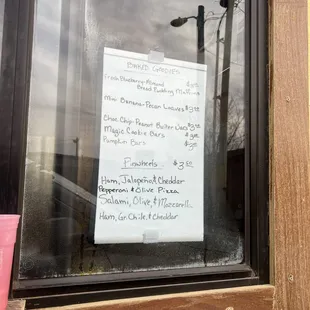 BAKED GOODIES
Fresh Blueberry-Almond
Bread Pudding Muffins
Mini Banana-Pecan Loaves $3
Choc Chip-Peanut Butter Bars $3
Magic Cookie Bars $
Pumpkin Bars $
Pinwheels $3
Ham, Jalapeño & Cheddar
Pepperoni & Olive Pizza
Salami, Olive, & Mozzarell
Ham, Gr. Chile, & Cheddar